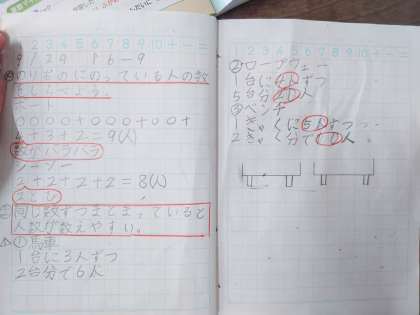 1 2 3 4 5 6 7 8 9 10 + - =
9/29
のりもののにのっている人の数
をしらべよう。
ボート
0000+000+00+
4+3+2=9(人)
数がバラバラ
2+2+2+2=8(人)
同じ数ずつまとまっていると
人数が数えやすい。
①馬車
1台に3人ずつ
2台分で6人
1 2 3 4 5 6 7 8 9 10 + - =
②ロープウェー
1台に4人ずつ
5台分 人
③ベンチ
きゃくに5人ずつ
2きゃく分で 人